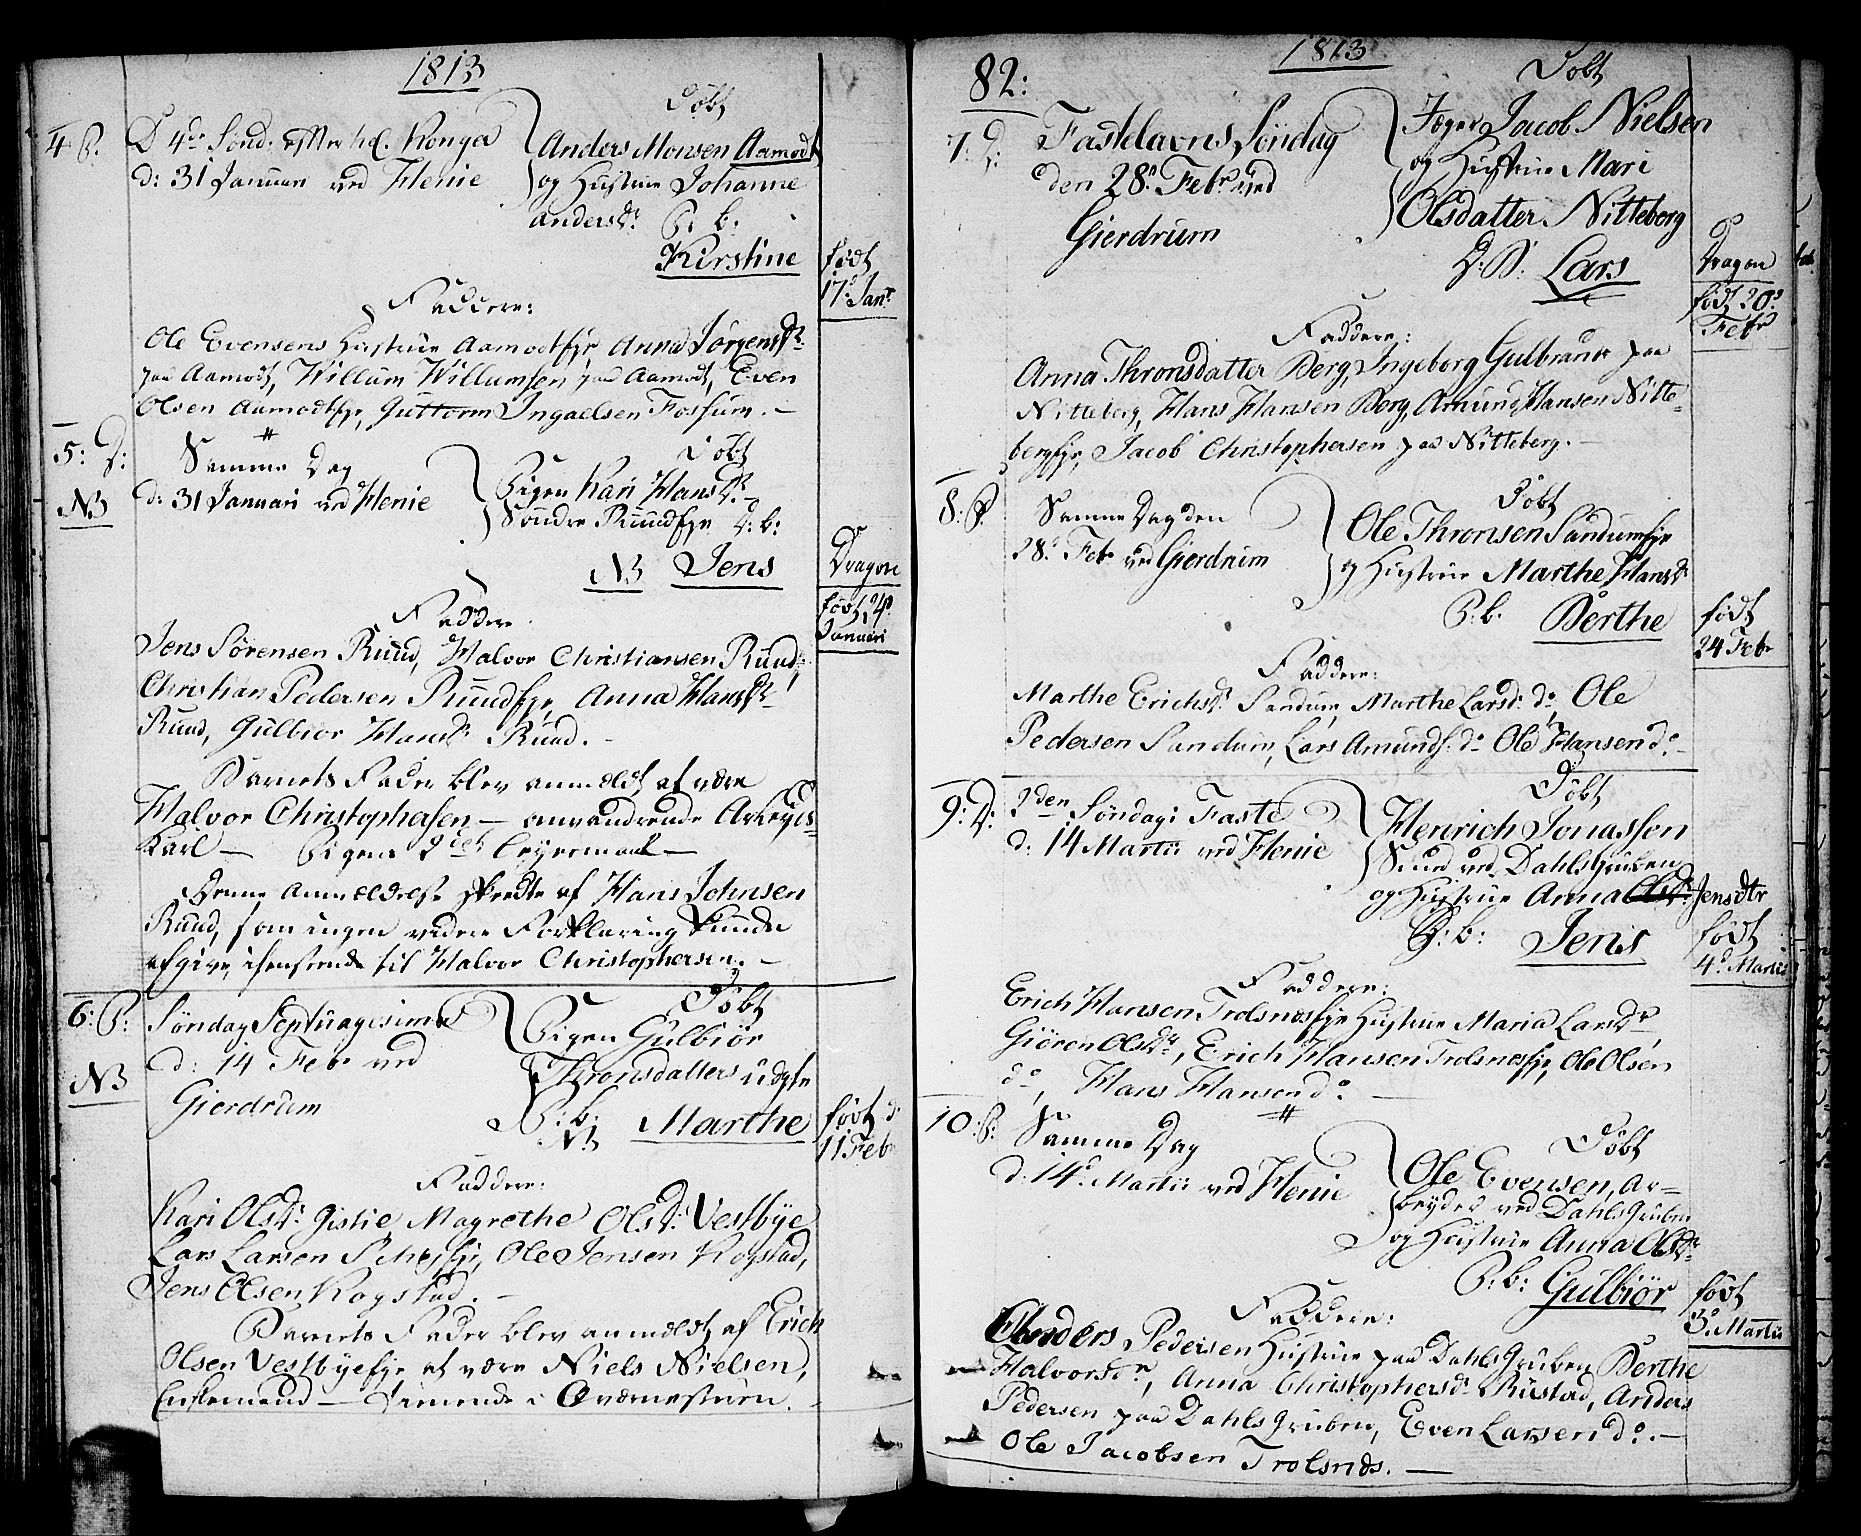 1813
4 P. D 4de Sønd. efter hel. Konger
d: 31 Januari ved Henie
Døbt
Anders Monsen Aamodt
og Hustrue Johanne
Andersdr.
P: b:
Kirstine
født
17de Janr
Faddere:
Ole Evensens Hustrue Aamodteje, Anna Jørgensdr.
paa Aamodt, Willum Willumsen paa Aamodt, Even
Olsen Aamodteje, Guttorm Ingaelsen Fossum. —
5: D:
NB
Samme Dag
d: 31 Januari ved Henie
Døbt
Pigen Kari Hansdr.
Søndre Ruudeje D: b:
NB Jens
Dragon
født 24de
Januari
Faddere
Jens Sørensen Ruud, Halvor Christiansen Ruud,
Christian Pedersen Ruudeje, Anna Hansdr.
Ruud, Gulbior Hansdr. Ruud. —
Barnets Fader blev anmeldt at være
Halvor Christophersen — omvandrende Arbeids-
Karl — Pigens 2det Leyermaal —
Denne Anmeldelse skeedte af Hans Johnsen
Ruud, som ingen videre Forklaring kunde
afgive, henseende til Halvor Christophersen. —
6: P:
NB
Søndag Septuagesima
d: 14 Febr ved
Gierdrum
Døbt
Pigen Gulbiør
Thronsdatters
P: b:
NB Marthe
født d:
11 Feb
Faddere:
Kari Olsdr. Gistie Magrethe Olsd: Vestbye
Lars Larsen Ole Jensen Kogstad,
Jens Olsen Kogstad. —
Barnets Fader blev anmeldt af Erich
Olsen Vestbyeeje at være Niels Nielsen,
Enkemand — tienende i Qværnestuen.
82:
1813
7: D:
Fastelavns Søndag
den 28de Febr ved
Gierdrum
Døbt
Jæger Jacob Nielsen
og Hustrue Mari
Olsdatter Nitteberg
D: B: Lars
Dragon
født 20de
Febr
Faddere:
Anna Thronsdatter Berg, Ingeborg Gulbrandsdr paa
Nitteberg, Hans Hansen Berg, Amund Hansen Nitte-
bergeje, Jacob Christophersen paa Nitteberg. —
8: P.
Samme Dag den
28de Febr ved Gierdrum
Døbt
Ole Thronsen Sandumeje
og Hustrue Marthe Hansdr
P: b: Berthe
født
24 Febr
Faddere:
Marthe Erichsdr. Sandum, Marthe Larsd: do, Ole
Pedersen Sandum, Lars Amunds: do Ole Hansen do —
9: D:
2den Søndag i Faste
d: 14 Martii ved Henie
Døbt
Henrich Jonassen
Smed ved Dahls Gruben
og Hustrue Anna Jensdtr
D: b: Jens
født
4de Martii
Faddere:
Erich Hansen Trolsnæseje Hustrue Maria Larsdr
Giøren Olsdr, Erich Hansen Trolsnæseje, Ole Olsen
do, Hans Hansen do —
10: P:
Samme Dag
d: 14de Martii ved Henie
Døbt
Ole Evensen, Ar-
beyder ved Dahls Gruben
og Hustrue Anna Olsdr
P: b: Gulbiør
født
3de Martii
Faddere:
Anders Pedersen Hustrue paa Dahls Gruben Berthe
Halvorsdr, Anna Christophersdr Rustad, Anders
Pedersen paa Dahls Gruben, Even Larsen do. —
Ole Jacobsen Trolsnæs. —